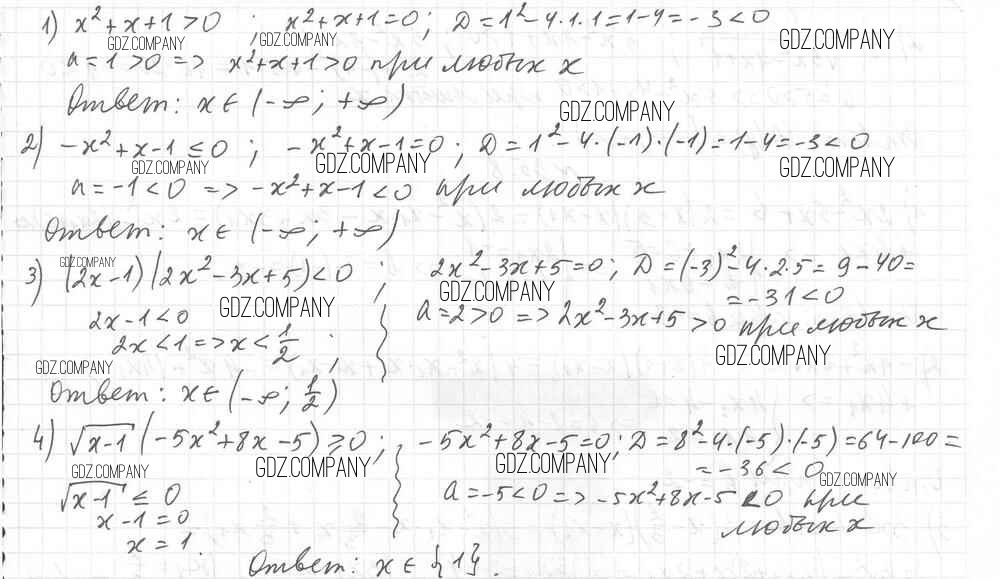 1) x²+x+1>0 ; x²+x+1=0; D=1²-4·1·1=1-4=-3<0
GDZ.COMPANY GDZ.COMPANY GDZ.COMPANY
a=1>0 => x²+x+1>0 при любых x
Ответ: x∈(-∞; +∞)
GDZ.COMPANY
2) -x²+x-1≤0 ; -x²+x-1=0 ; D=1²-4·(-1)·(-1)=1-4=-3<0
GDZ.COMPANY GDZ.COMPANY GDZ.COMPANY
a=-1<0 => -x²+x-1<0 при любых x
Ответ: x∈(-∞; +∞)
GDZ.COMPANY
3) (2x-1)(2x²-3x+5)<0 ; 2x²-3x+5=0; D=(-3)²-4·2·5=9-40=
=-31<0
GDZ.COMPANY GDZ.COMPANY
2x-1<0 a=2>0 => 2x²-3x+5>0 при любых x
2x<1=>x<1/2 ;
GDZ.COMPANY GDZ.COMPANY
Ответ: x∈(-∞; 1/2)
4) √x-1 (-5x²+8x-5)≥0; -5x²+8x-5=0; D=8²-4·(-5)·(-5)=64-100=
=-36<0
GDZ.COMPANY GDZ.COMPANY GDZ.COMPANY GDZ.COMPANY
√x-1 ≤0 a=-5<0=>-5x²+8x-5<0 при
x-1=0 любых x
x=1.
Ответ: x∈{1}.